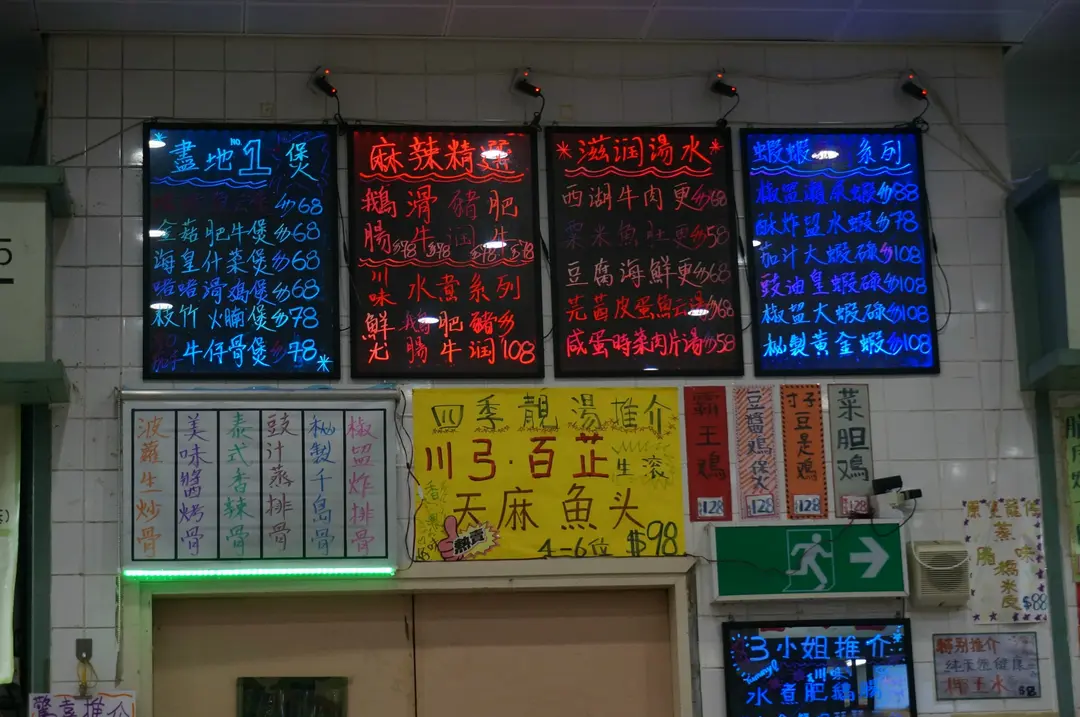 盡地 NO.1 煲
$68
金菇肥牛煲$68
海皇什菜煲$68
啫啫滑鸡煲$68
枝竹火腩煲$78
牛仔骨煲$78
麻辣精選
鵝 滑 豬 肥
腸 牛 润 牛
川味 水煮系列
鲜尤 鵝腸 肥牛 豬润 $108
滋润湯水
西湖牛肉更$68
粟米魚肚更$58
豆腐海鮮更$68
芫茜皮蛋魚云湯$68
咸蛋時菜肉片湯$58
蝦蝦 系列
椒盐瀨尿蝦$88
酥炸盐水蝦$78
茄汁大蝦碌$108
豉油皇蝦碌$108
椒盐大蝦碌$108
秘製黃金蝦$108
波蘿生炒骨
美味醬烤骨
泰式香辣骨
豉汁蒸排骨
秘製千島骨
椒盐炸排骨
四季靚湯推介
川弓·百芷
生滚
天麻魚头
熱賣
4-6位 $98
霸王鳮 $128
豆醬鸡 $128
豆是鳮 $128
菜胆鸡 $128
3小姐推介
川味
水煮肥鵝腸
特别推介
驚喜推介
$88